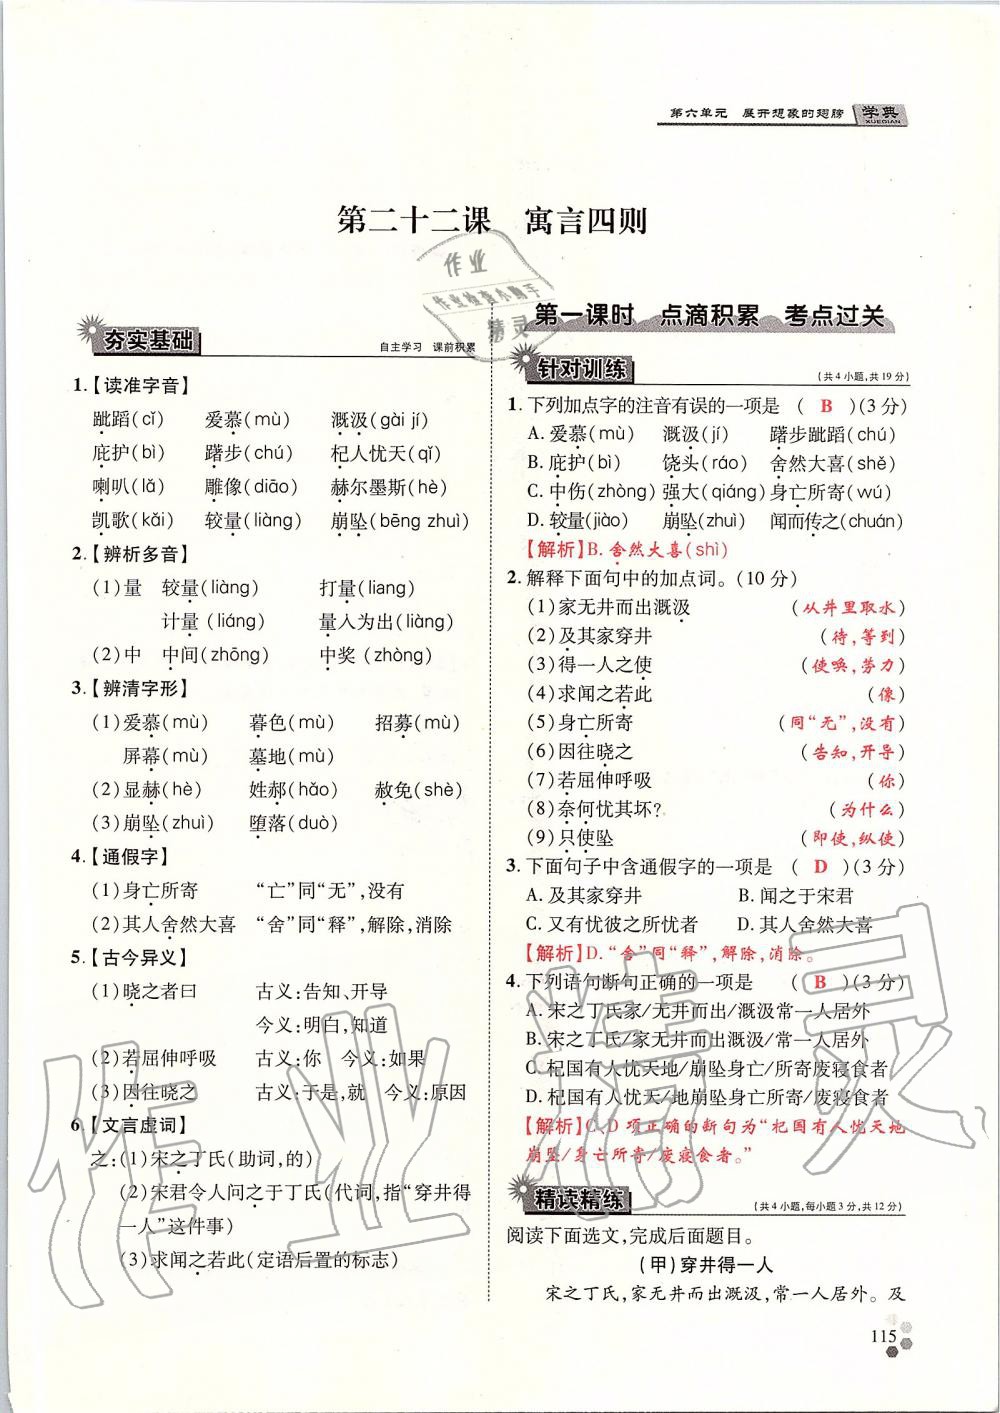 第六单元 展开想象的翅膀 学典
XUEDIAN
第二十二课 寓言四则
夯实基础
自主学习 课前积累
1.【读准字音】
跐蹈(cǐ) 爱慕(mù) 溉汲(gài jí)
庇护(bì) 躇步(chú) 杞人忧天(qǐ)
喇叭(lǎ) 雕像(diāo) 赫尔墨斯(hè)
凯歌(kǎi) 较量(liàng) 崩坠(bēng zhuì)
2.【辨析多音】
(1)量 较量(liàng) 打量(liang)
计量(liáng) 量入为出(liàng)
(2)中 中间(zhōng) 中奖(zhòng)
3.【辨清字形】
(1)爱慕(mù) 暮色(mù) 招募(mù)
屏幕(mù) 墓地(mù)
(2)显赫(hè) 姓郝(hǎo) 赦免(shè)
(3)崩坠(zhuì) 堕落(duò)
4.【通假字】
(1)身亡所寄 “亡”同“无”,没有
(2)其人舍然大喜 “舍”同“释”,解除,消除
5.【古今异义】
(1)晓之者曰 古义:告知、开导
今义:明白,知道
(2)若屈伸呼吸 古义:你 今义:如果
(3)因往晓之 古义:于是,就 今义:原因
6【文言虚词】
之:(1)宋之丁氏(助词,的)
(2)宋君令人问之于丁氏(代词,指“穿井得
一人”这件事)
(3)求闻之若此(定语后置的标志)
第一课时 点滴积累 考点过关
针对训练
(共4小题,共19分)
1.下列加点字的注音有误的一项是 ( B )(3分)
A.爱慕(mù) 溉汲(jí) 躇步跐蹈(chú)
B.庇护(bì) 饶头(ráo) 舍然大喜(shě)
C.中伤(zhòng) 强大(qiáng) 身亡所寄(wú)
D.较量(jiào) 崩坠(zhuì) 闻而传之(chuán)
【解析】B.舍然大喜(shì)
2.解释下面句中的加点词。(10分)
(1)家无井而出溉汲 (从井里取水)
(2)及其家穿井 (待,等到)
(3)得一人之使 (使唤,劳力)
(4)求闻之若此 (像)
(5)身亡所寄 (同“无”,没有)
(6)因往晓之 (告知,开导)
(7)若屈伸呼吸 (你)
(8)奈何忧其坏? (为什么)
(9)只使坠 (即使,纵使)
3.下面句子中含通假字的一项是 ( D )(3分)
A.及其家穿井 B.闻之于宋君
C.又有忧彼之所忧者 D.其人舍然大喜
【解析】D.“舍”同“释”,解除,消除。
4.下列语句断句正确的一项是 ( B )(3分)
A.宋之丁氏家/无井而出/溉汲常一人居外
B.宋之丁氏/家无井而出溉汲/常一人居外
C.杞国有人忧天地/崩坠身亡/所寄废寝食者
D.杞国有人忧天/地崩坠身亡所寄/废寝食者
【解析】C、D项正确的断句为“杞国有人忧天地
崩坠/身亡所寄/废寝食者。”
精读精练
(共4小题,每小题3分,共12分)
阅读下面选文,完成后面题目。
(甲)穿井得一人
宋之丁氏,家无井而出溉汲,常一人居外。及
115
作业
作业检查小助手
精灵
作业精灵